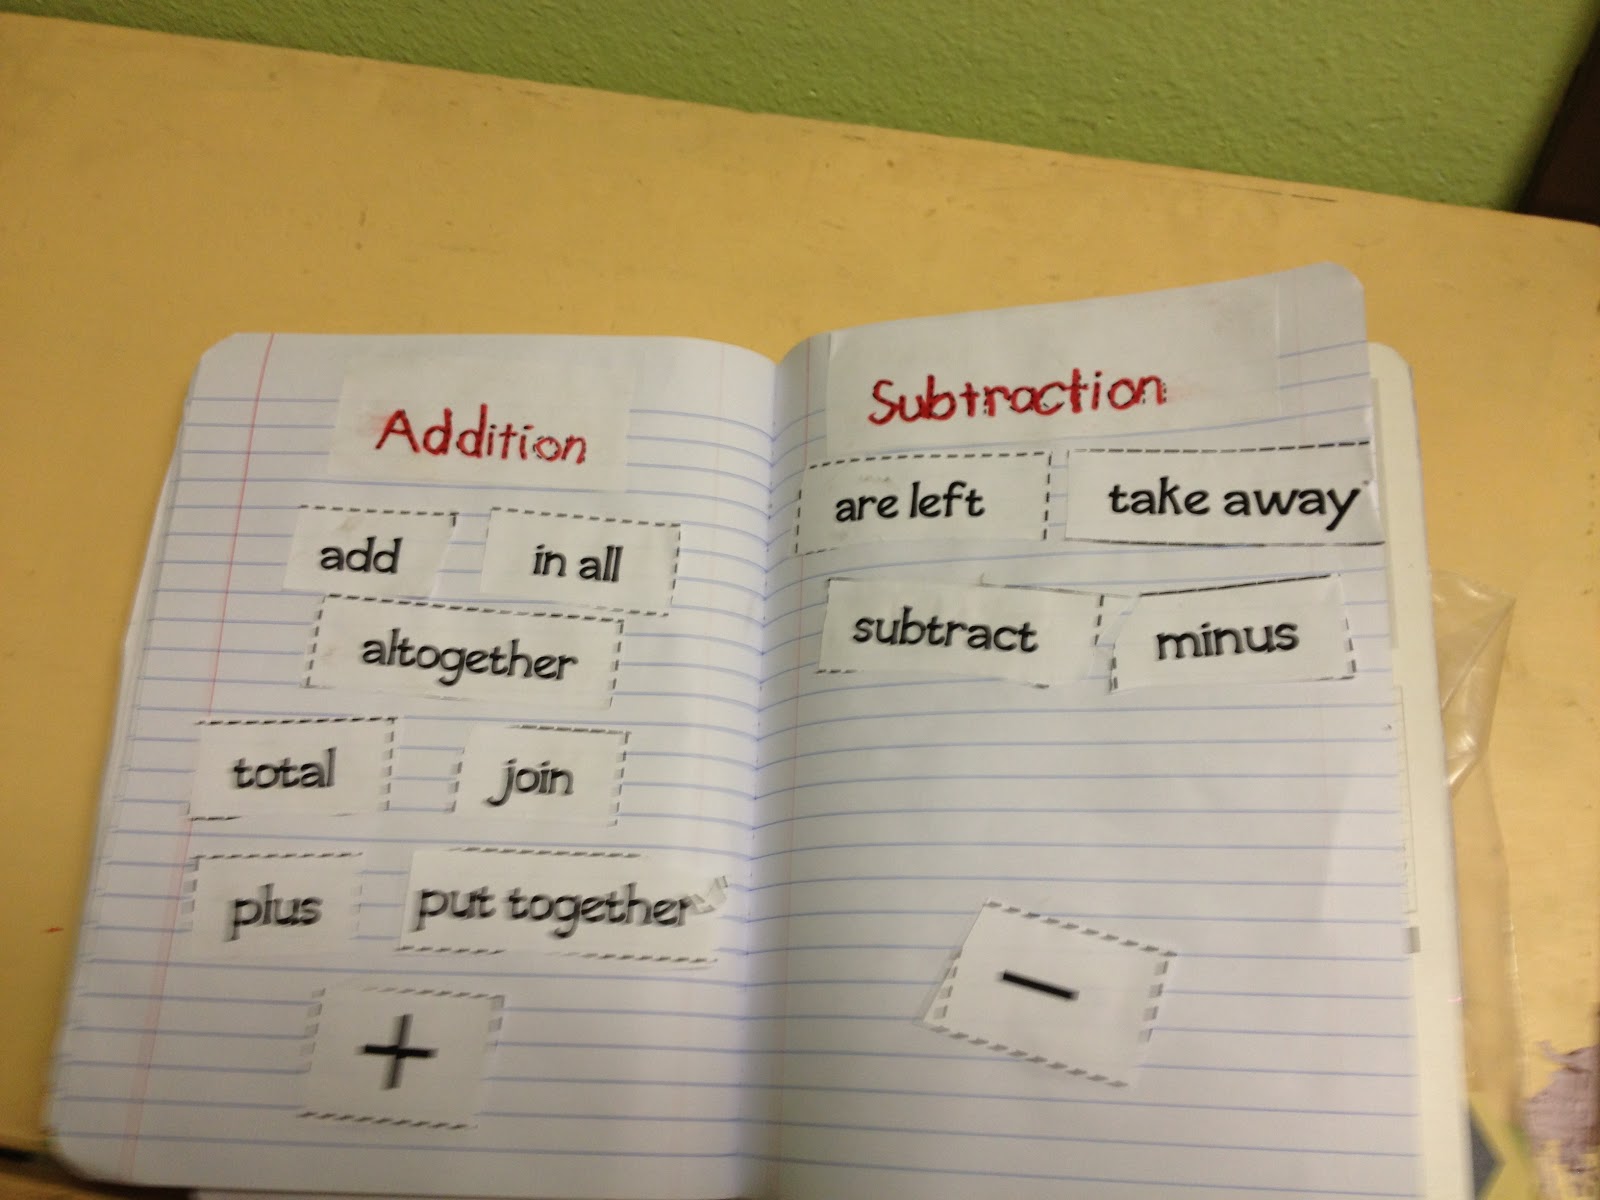 Addition
add in all
altogether
total join
plus put together
+
Subtraction
are left take away
subtract minus
−